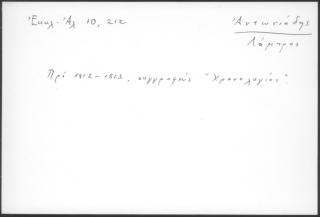 Ἐκκλ. Ἀλ 10, 212
Ἀντωνιάδης
Λάμπρος
Πρὸ 1812-1813, συγγραφεὺς "Χρονολογίας".